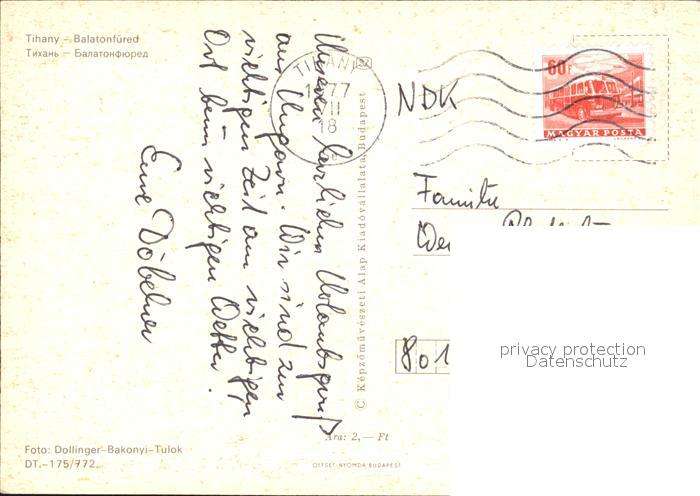 Tihany – Balatonfüred
Тихань – Балатонфюред
Unseren herzlichen Urlaubsgruß
aus Ungarn. Wir sind zur
richtigen Zeit am richtigen
Ort beim richtigen Wetter.
Eure Döbelner
Foto: Dollinger–Bakonyi–Tulok
DT.–175/772.
© Képzőművészeti Alap Kiadóvállalata, Budapest
Ára: 2,— Ft
OFFSET-NYOMDA BUDAPEST
TIHANY
77
18
NDK
60f
MAGYAR POSTA
Familie
801
privacy protection
Datenschutz